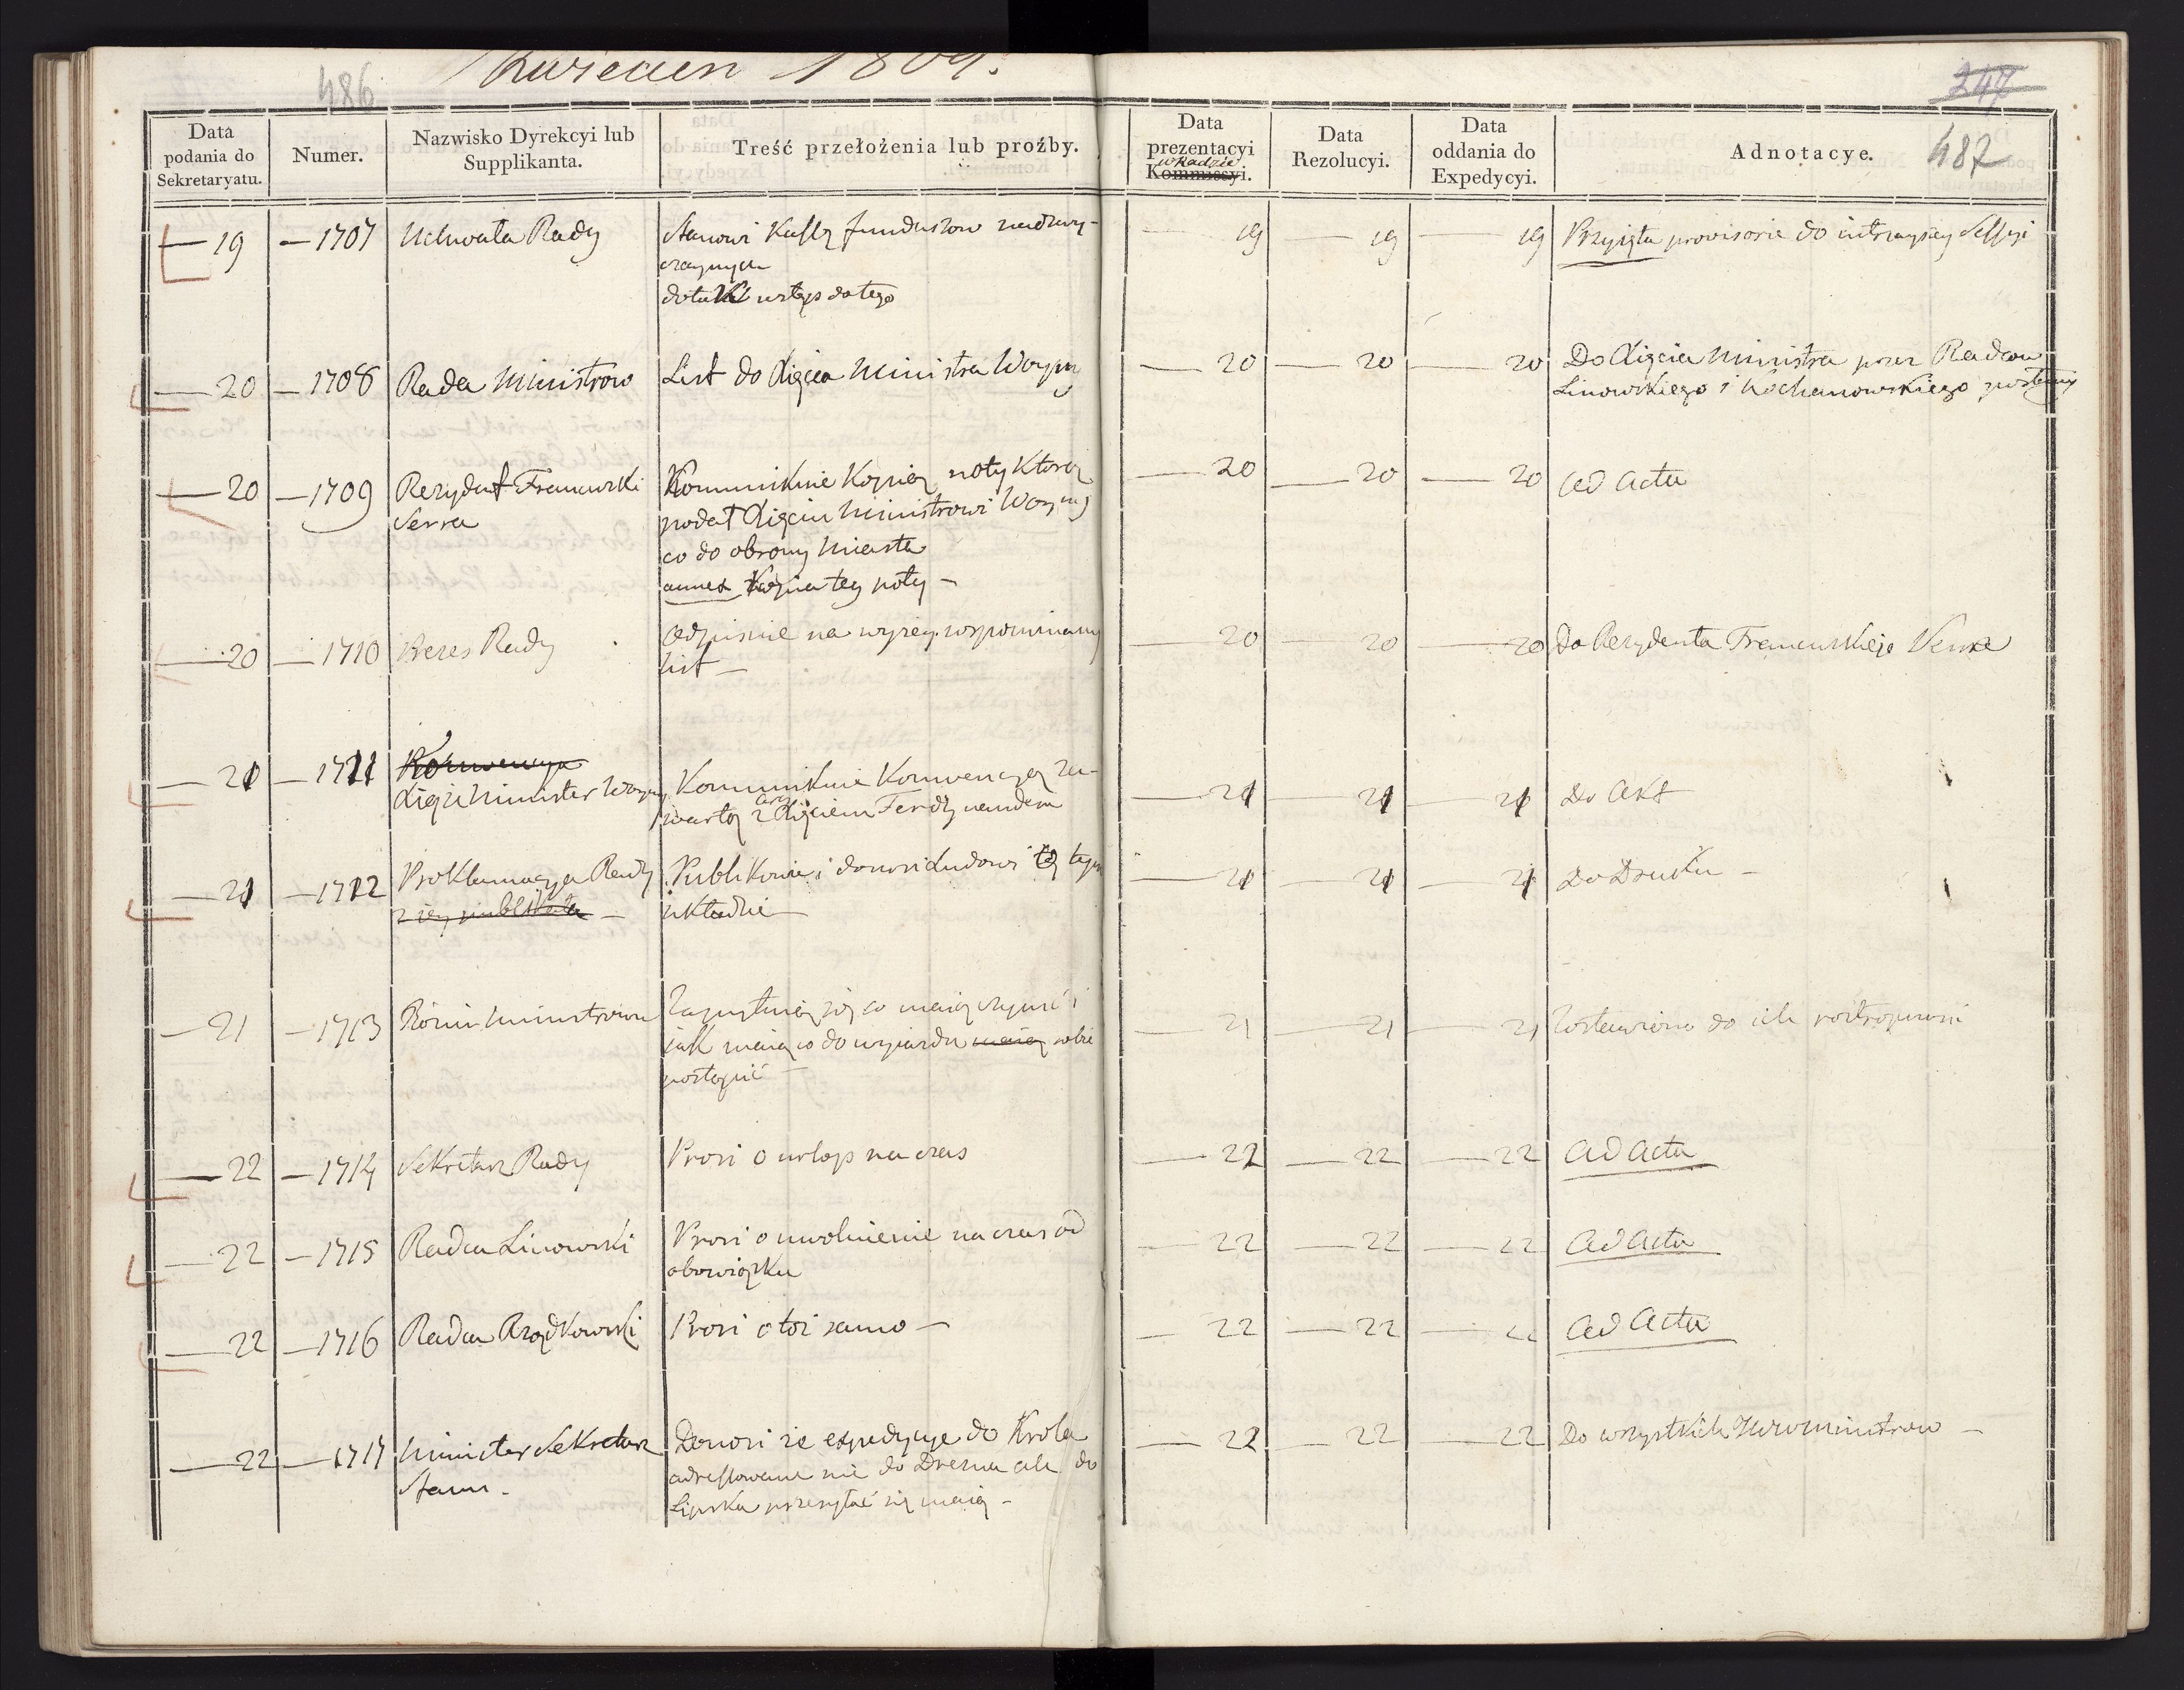 486
Kwiecien 1809.
247
487
Data podania do Sekretaryatu.
Numer.
Nazwisko Dyrekcyi lub Supplikanta.
Treść przełożenia lub proźby.
Data prezentacyi w Radzie Kommissyi.
Data Rezolucyi.
Data oddania do Expedycyi.
Adnotacye.
19 — 1707 Uchwała Rady
Stanowi Kassę funduszow nadzwy-
czaynych
19 — 19 — 19 Przyięta provisorie do iutrzeyszey Sessyi
20 — 1708 Rada Ministrow
List do Xięcia Ministra Woyny
20 — 20 — 20 Do Xięcia Ministra przez Radcow
Linowskiego i Kochanowskiego
20 — 1709 Rezydent Francuski
Serra
Kommunikuie Kopią noty Ktorą
podał Xięciu Ministrowi Woyny
co do obrony Miasta
annex Kopia tey noty —
20 — 20 — 20 Ad Acta
20 — 1710 Prezes Rady
Odpisuie na wyżey wspomniany
list —
20 — 20 — 20 Do Rezydenta Francuskiego Serra
21 — 1711 Konwencya
Xiąże Minister Woyny
Kommunikuie Konwencyą za-
wartą z Arcy Xięciem Ferdynandem
21 — 21 — 21 Do Akt
21 — 1712 Proklamacya Rady
Publikuie i donosi Ludowi o tym
układzie —
21 — 21 — 21 Do Druku —
21 — 1713 Różni Ministrowie
Zapytuią się co maią czynić i
iak maią co do wyiazdu maią sobie
postąpić —
21 — 21 — 21 Zostawiono do ich roztropnosci
22 — 1714 Sekretarz Rady
Prosi o urlop na czas
22 — 22 — 22 Ad Acta
22 — 1715 Radca Linowski
Prosi o uwolnienie na czas od
obowiązku
22 — 22 — 22 Ad Acta
22 — 1716 Radca Rządkowski
Prosi o toż samo —
22 — 22 — 22 Ad Acta
22 — 1717 Minister Sekretarz
Stanu.
Donosi że expedycye do Krola
adressowane nie do Drezna ale do
Lipska przesyłać się maią —
22 — 22 — 22 Do wszystkich Ministrow —